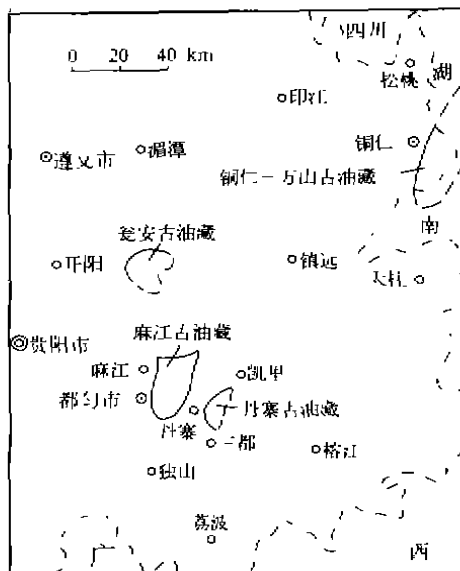 0 20 40 km
四川
松桃
湖
印江
铜仁
遵义市
湄潭
铜仁－万山古油藏
南
瓮安古油藏
开阳
镇远
天柱
贵阳市
麻江古油藏
麻江
凯甲
都匀市
丹寨古油藏
丹寨
三都
榕江
独山
荔波
广
西